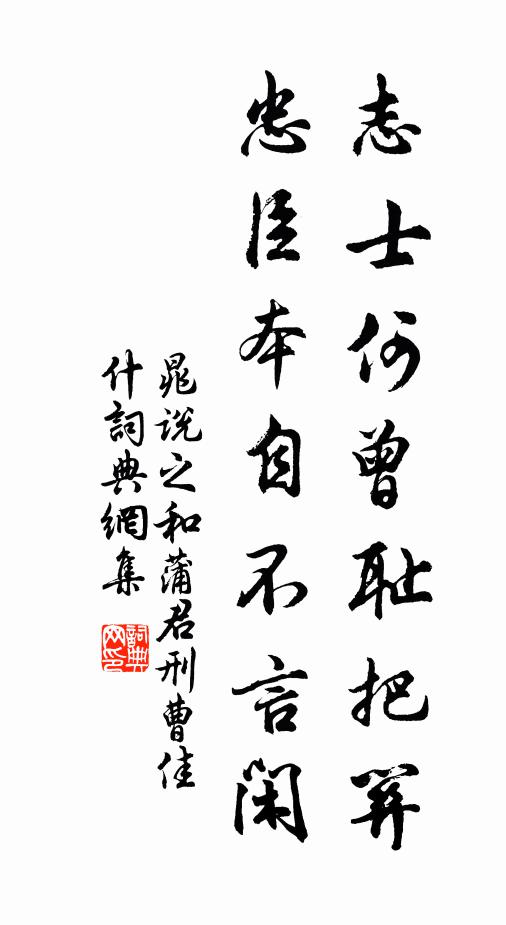 志士何曾耻把關
忠臣本自不言閑
晁說之和蒲君刑曹佳
什詞典網集
詞典網印